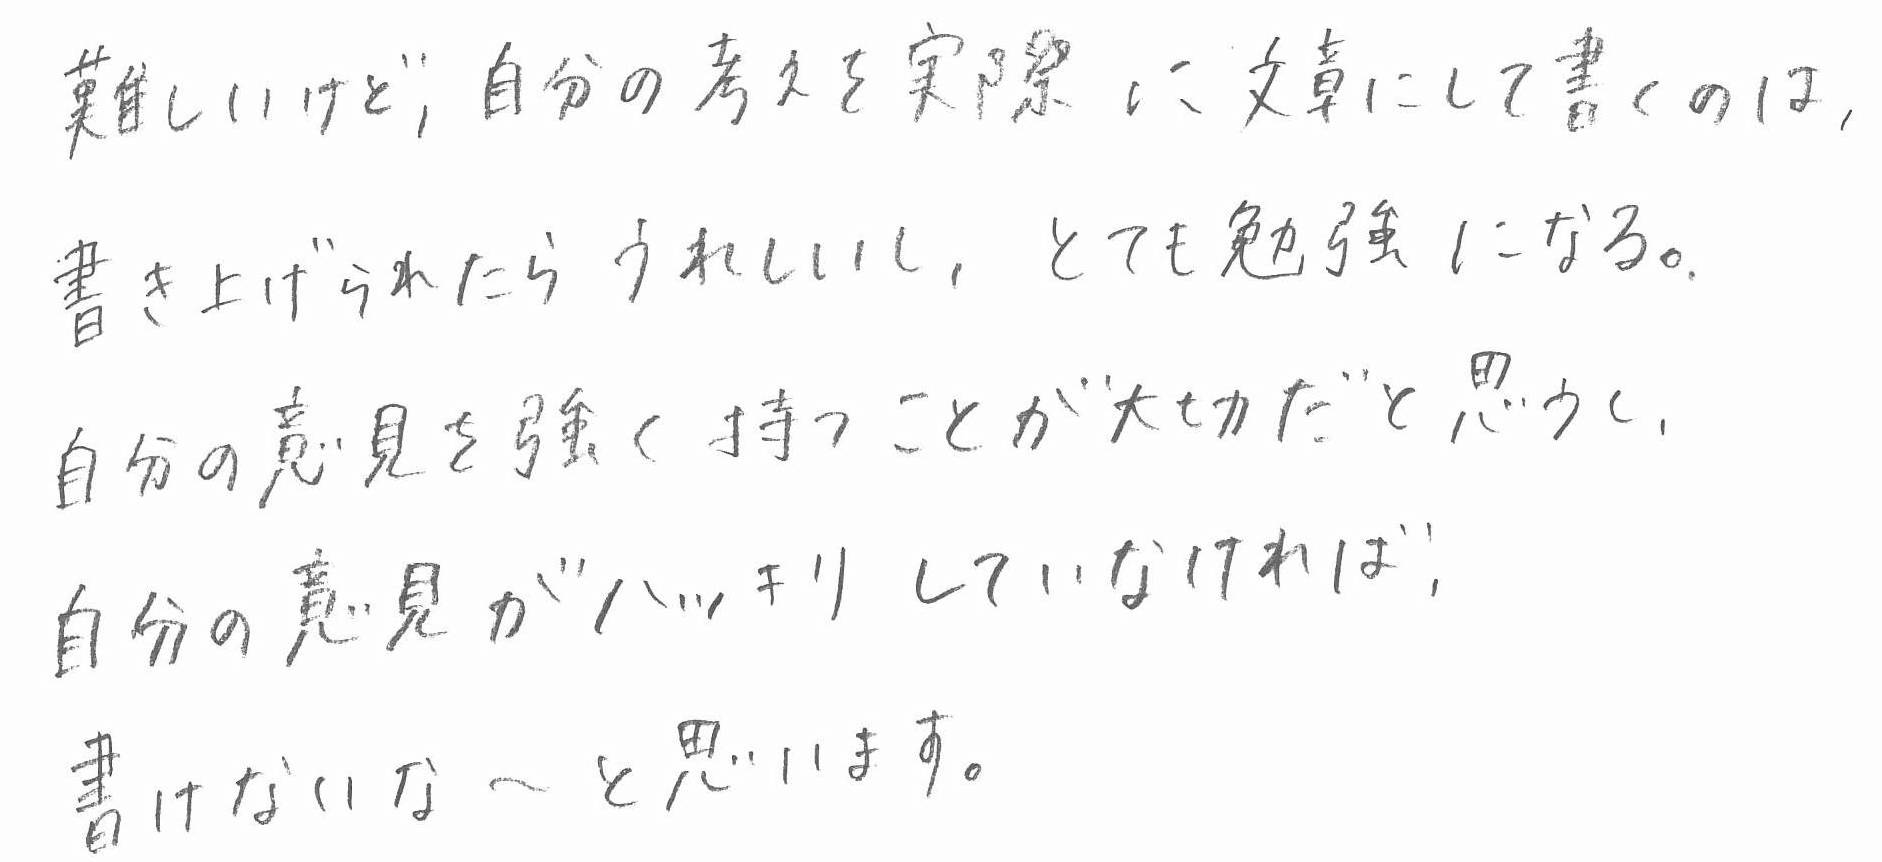 難しいけど，自分の考えを実際に文章にして書くのは，
書き上げられたらうれしいし，とても勉強になる。
自分の意見を強く持つことが大切だと思うし，
自分の意見がハッキリしていなければ，
書けないな〜と思います。